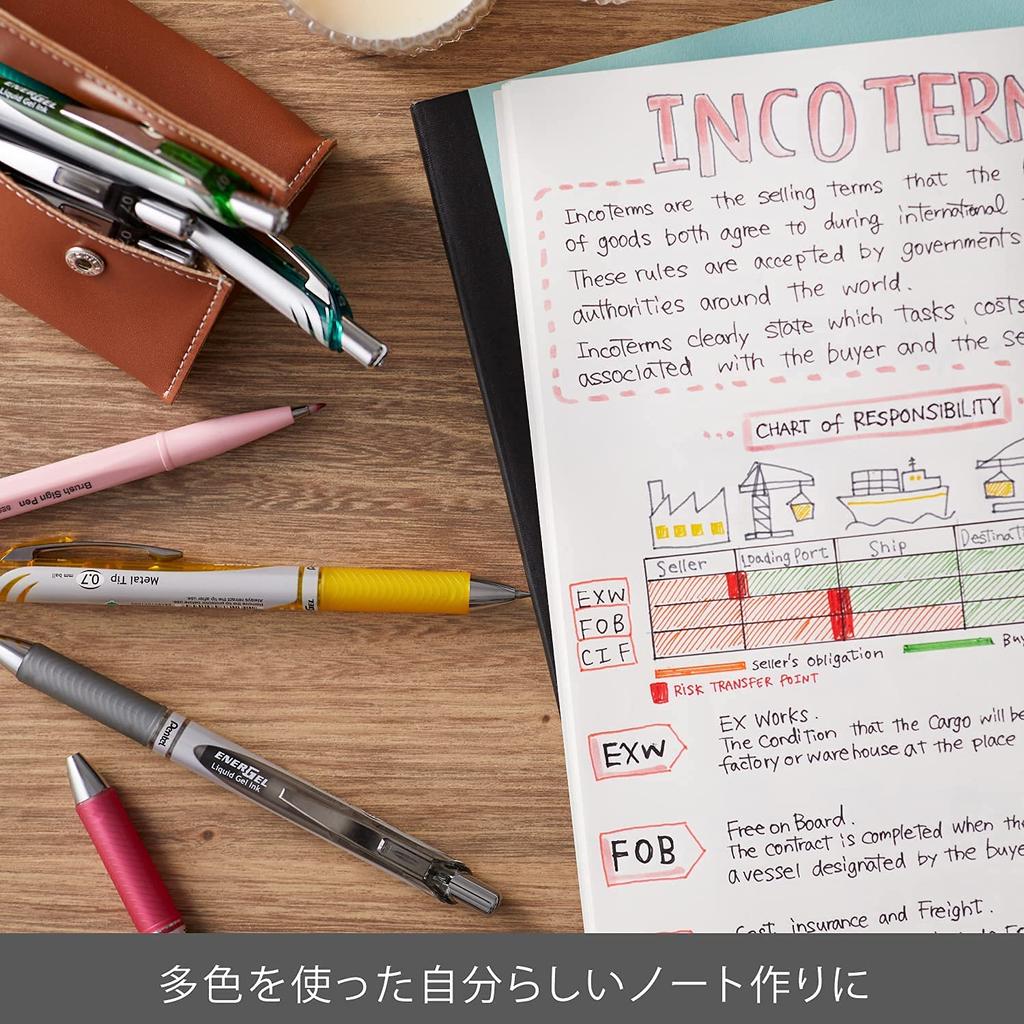 INCOTERM
Incoterms are the selling terms that the
of goods both agree to during international
These rules are accepted by governments
authorities around the world.
Incoterms clearly state which tasks, costs
associated with the buyer and the se
CHART of RESPONSIBILITY
Seller Loading Port Ship Destinat
EXW
FOB
CIF
seller's obligation Bu
RISK TRANSFER POINT
EXW
EX Works.
The Condition that the Cargo will be
factory or warehouse at the place
FOB
Free on Board.
The contract is completed when the
a vessel designated by the buye
Cost, insurance and Freight.
ENERGEL
Liquid Gel Ink
Brush Sign Pen
Metal Tip
0.7
mm ball
Always retract the tip after use.
Pentel
ENERGEL
Liquid Gel Ink
多色を使った自分らしいノート作りに